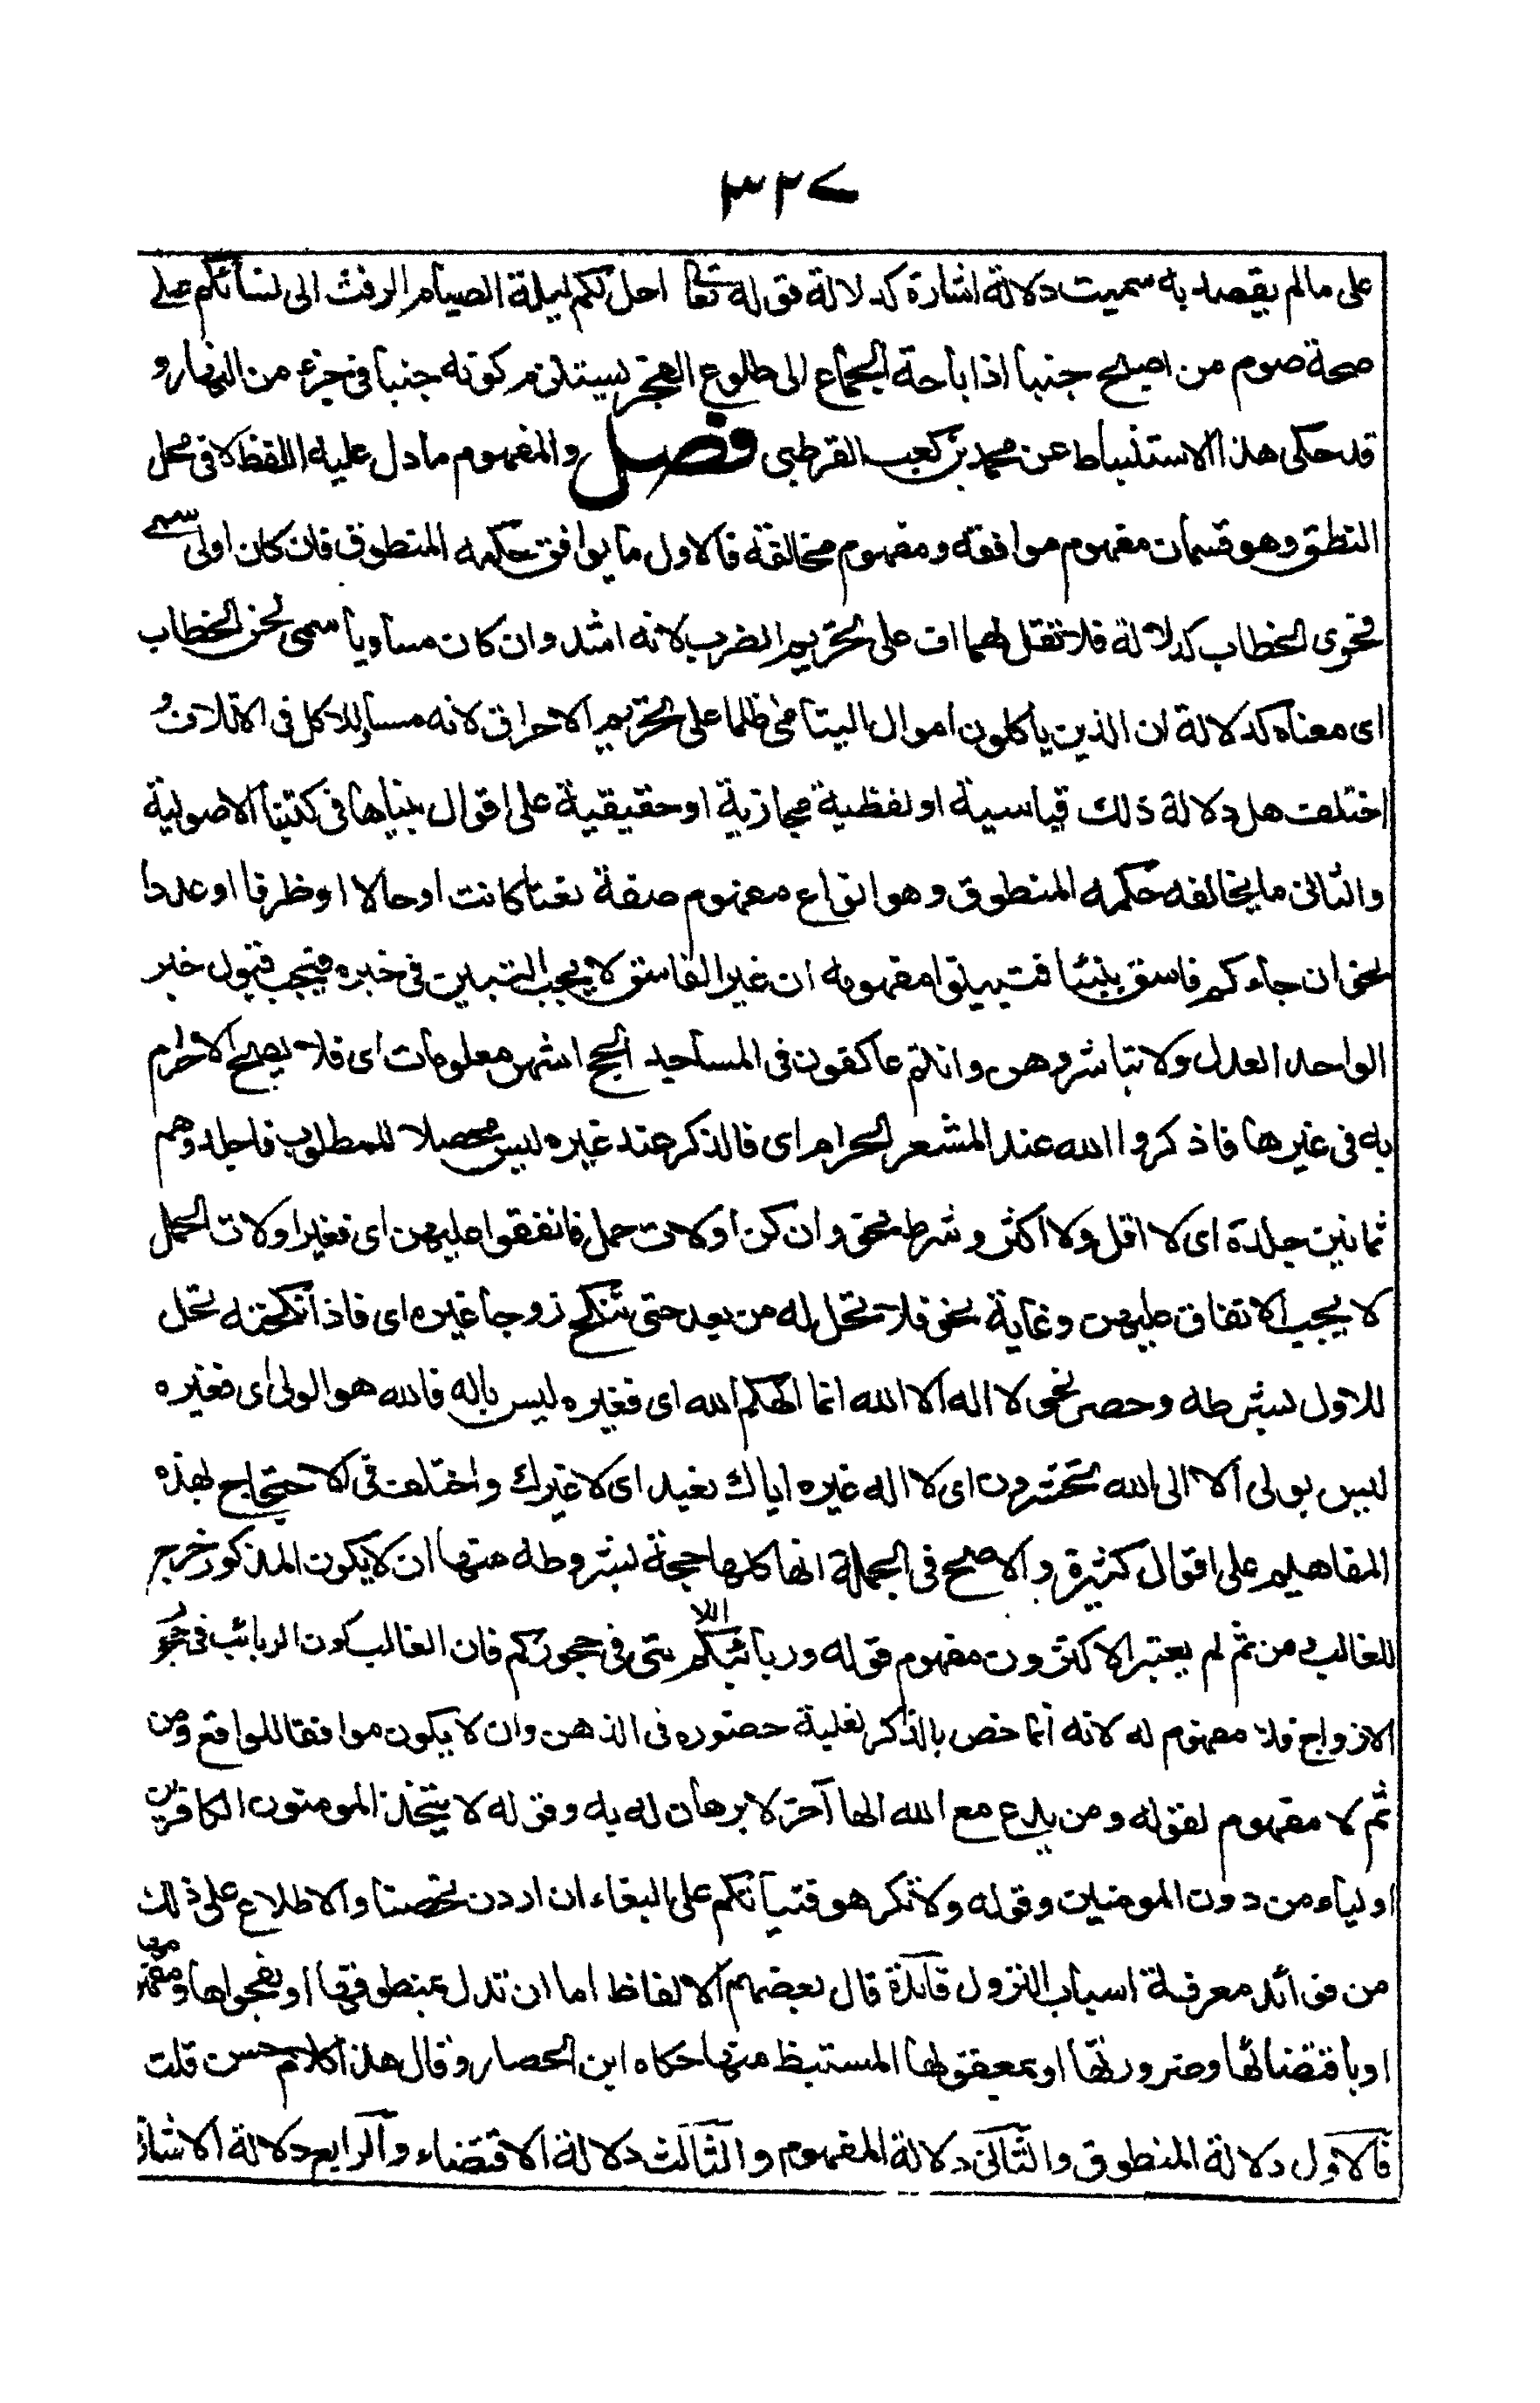 ٣٢٧
على مالم يقصد به سميت دلالة اشارة كدلالة قوله تعا احل لكم ليلة الصيام الرفث الى نسائكم على
صحة صوم من اصبح جنبا اذا باحة الجماع الى طلوع الفجر يستلزم كونه جنبا فى جزء من النهار و
قد حكى هذا الاستنباط عن محمد بن كعب القرظى فصل والمفهوم مادل عليه اللفظ لا فى محل
النطق وهو قسمان مفهوم موافقة ومفهوم مخالفة فالاول ما يوافق حكمه المنطوق فان كان اولى سمى
فحوى الخطاب كدلالة فلا تقل لهما اف على تحريم الضرب لانه اشد وان كان مساويا سمى لحن الخطاب
اى معناه كدلالة ان الذين ياكلون اموال اليتامى ظلما على تحريم الاحراق لانه مساو للاكل فى الاتلاف و
اختلف هل دلالة ذلك قياسية او لفظية مجازية او حقيقية على اقوال بيناها فى كتبنا الاصولية
والثانى ما يخالفه حكمه المنطوق وهو انواع مفهوم صفة نعتا كانت او حالا او ظرفا او عددا
نحو ان جاءكم فاسق بنبئا فتبينوا مفهومه ان غير الفاسق لا يجب التبيين فى خبره فيجب قبول خبر
الواحد العدل ولا تباشروهن وانتم عاكفون فى المساجد الحج اشهر معلومات اى فلا يصح الاحرام
به فى غيرها فاذكروا الله عند المشعر الحرام اى فالذكر عند غيره ليس محصلا للمطلوب فاجلدوهم
ثمانين جلدة اى لا اقل ولا اكثر وشرط نحو وان كن اولات حمل فانفقوا عليهن اى فغير اولات الحمل
لا يجب الانفاق عليهن وغاية نحو فلا تحل له من بعد حتى تنكح زوجا غيره اى فاذا نكحته تحل
للاول بشرطه وحصر نحو لا اله الا الله انما الهكم الله اى فغيره ليس باله فالله هو الولى اى فغيره
ليس بولى الا الى الله تحشرون اى لا اله غيره اياك نعبد اى لا غيرك واختلف فى الاحتجاج بهذه
المفاهيم على اقوال كثيرة والاصح فى الجملة انها كلها حجة بشروطه منها ان لا يكون المذكور خرج
للغالب ومن ثم لم يعتبر الاكثرون مفهوم قوله وربائبكم اللا تى فى حجوركم فان الغالب كون الربائب فى حجور
الازواج فلا مفهوم له لانه انما خص بالذكر لغلبة حضوره فى الذهن وان لا يكون موافقا للواقع ومن
ثم لا مفهوم لقوله ومن يدع مع الله الها آخر لا برهان له به وقوله لا يتخذ المومنون الكافرين
اولياء من دون المومنين وقوله ولا تكرهو فتياتكم على البغاء ان اردن تحصنا والاطلاع على ذلك
من فوائد معرفة اسباب النزول فائدة قال بعضهم الالفاظ اما ان تدل بمنطوقها او بفحواها ومفهومها
او باقتضائها وضرورتها او بمعقولها المستنبط منها حكاه ابن الحصار وقال هذا كلام حسن قلت
فالاول دلالة المنطوق والثانى دلالة المفهوم والثالث دلالة الاقتضاء والرابع دلالة الاشارة